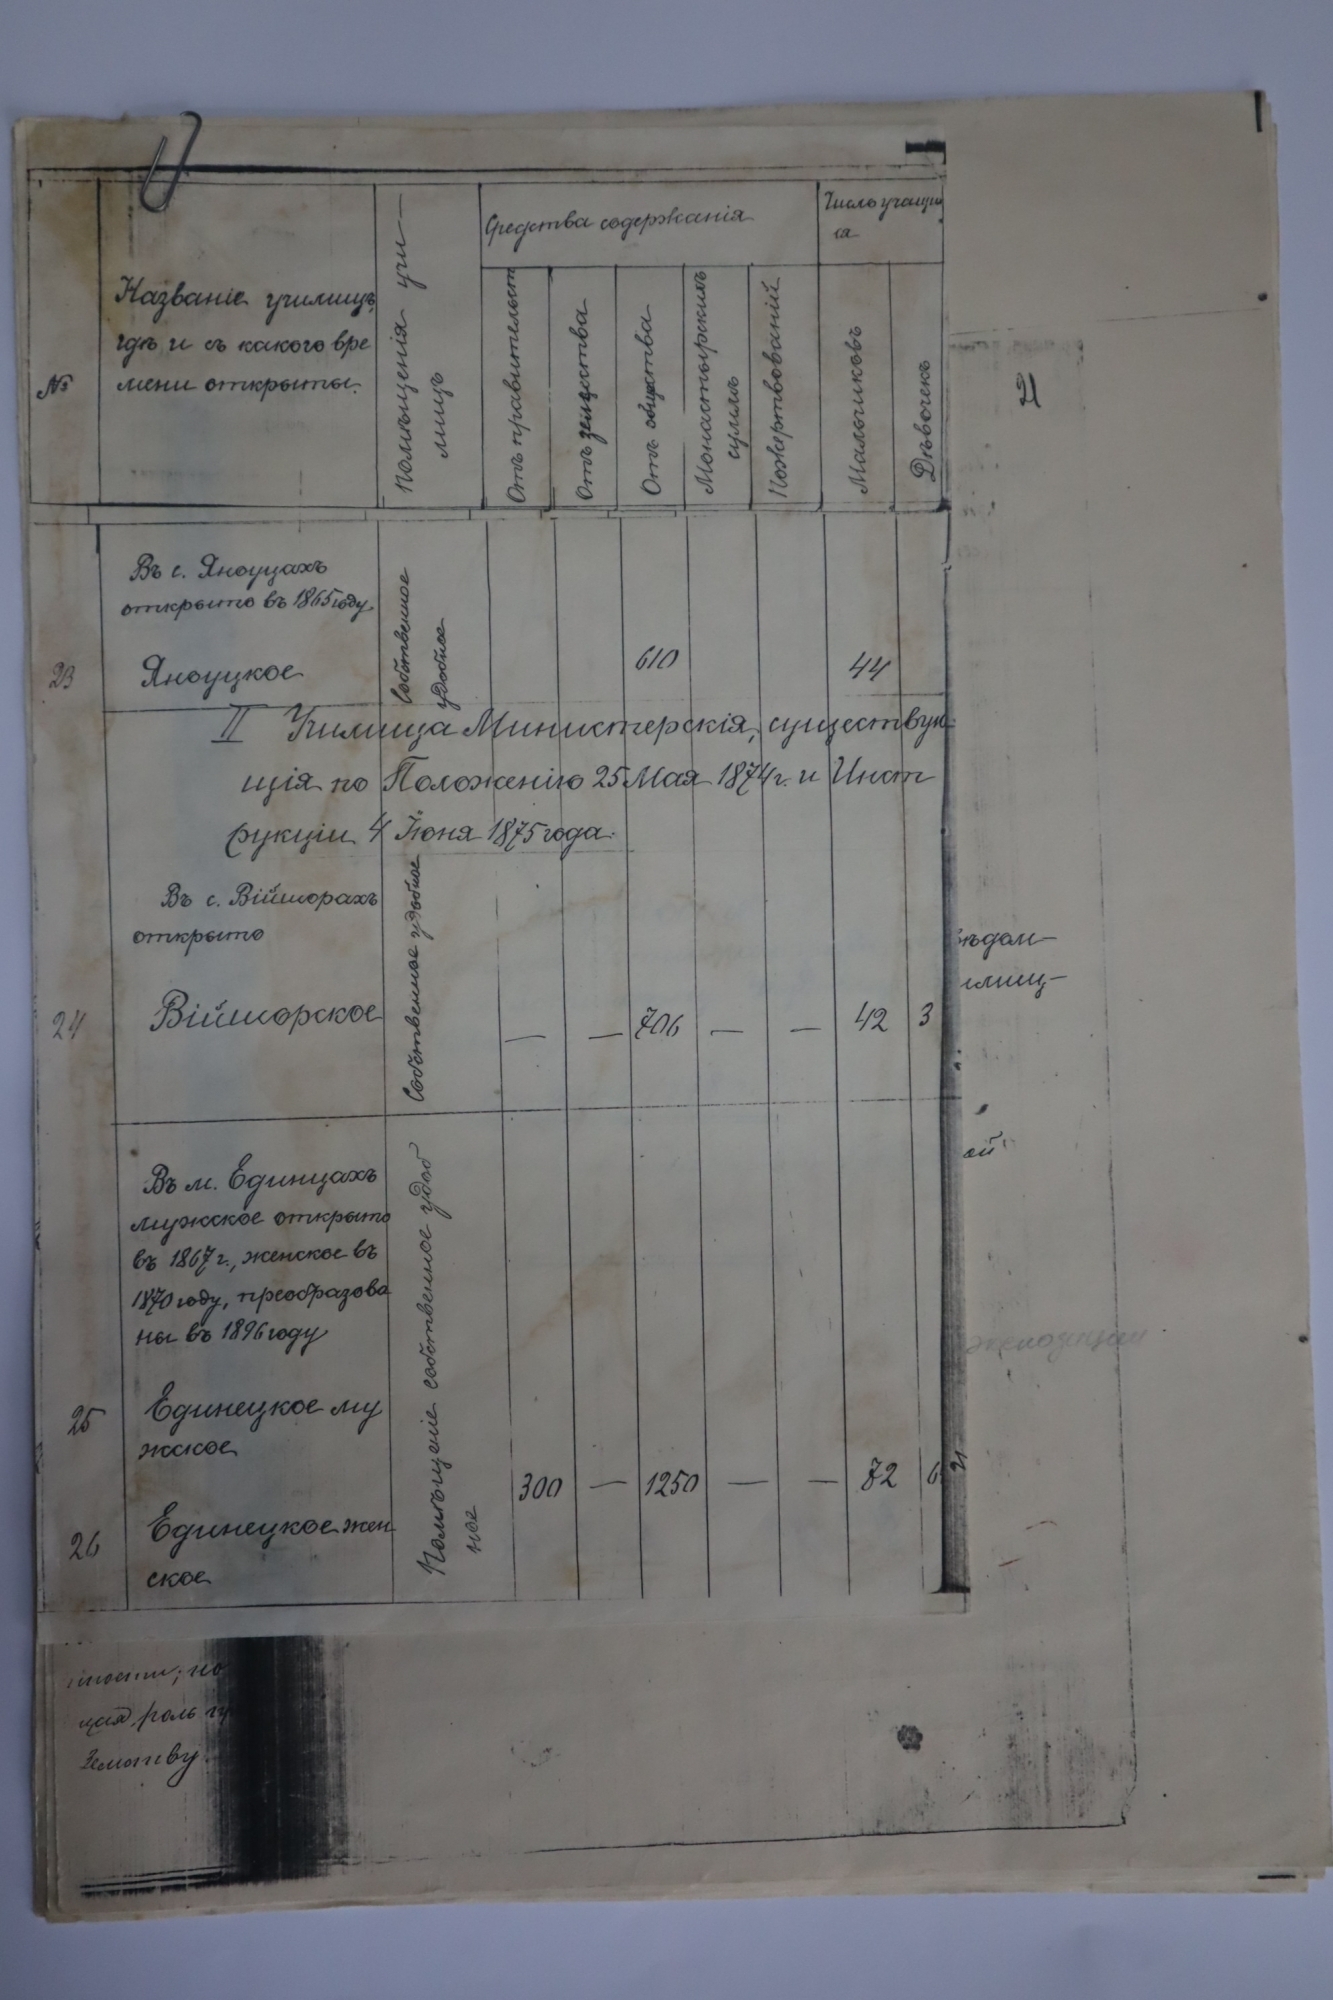 №
Названіе училищъ,
гдѣ и съ какого вре
мени открыты.
Помѣщенія учи—
лищъ
Средства содержанія
Отъ правительст
Отъ земства
Отъ общества
Монастырскихъ
суммъ
Пожертвованій
Число учащих
ся
Мальчиковъ
Дѣвочекъ
21
Въ с. Яноуцахъ
открыто въ 1865 году
23
Яноуцкое
Собственное
удобное
610
44
II Училища Министерскія, существую
щія по Положенію 25 Мая 1874 г. и Инст
рукціи 4 Іюня 1875 года.
Въ с. Війшорахъ
открыто
24
Війшорское
Собственное удобное
— — 706 — — 42 3
Въ м. Единцахъ
мужское открыто
въ 1867 г., женское въ
1870 году, преобразова
ны въ 1896 году
25
Единецкое му
жское
26
Единецкое жен
ское
Помѣщеніе собственное удоб
ное
300 — 1250 — — 72 6
вѣдом—
илищ—
ой
экспозиции
ности; но
щая роль
Земству.